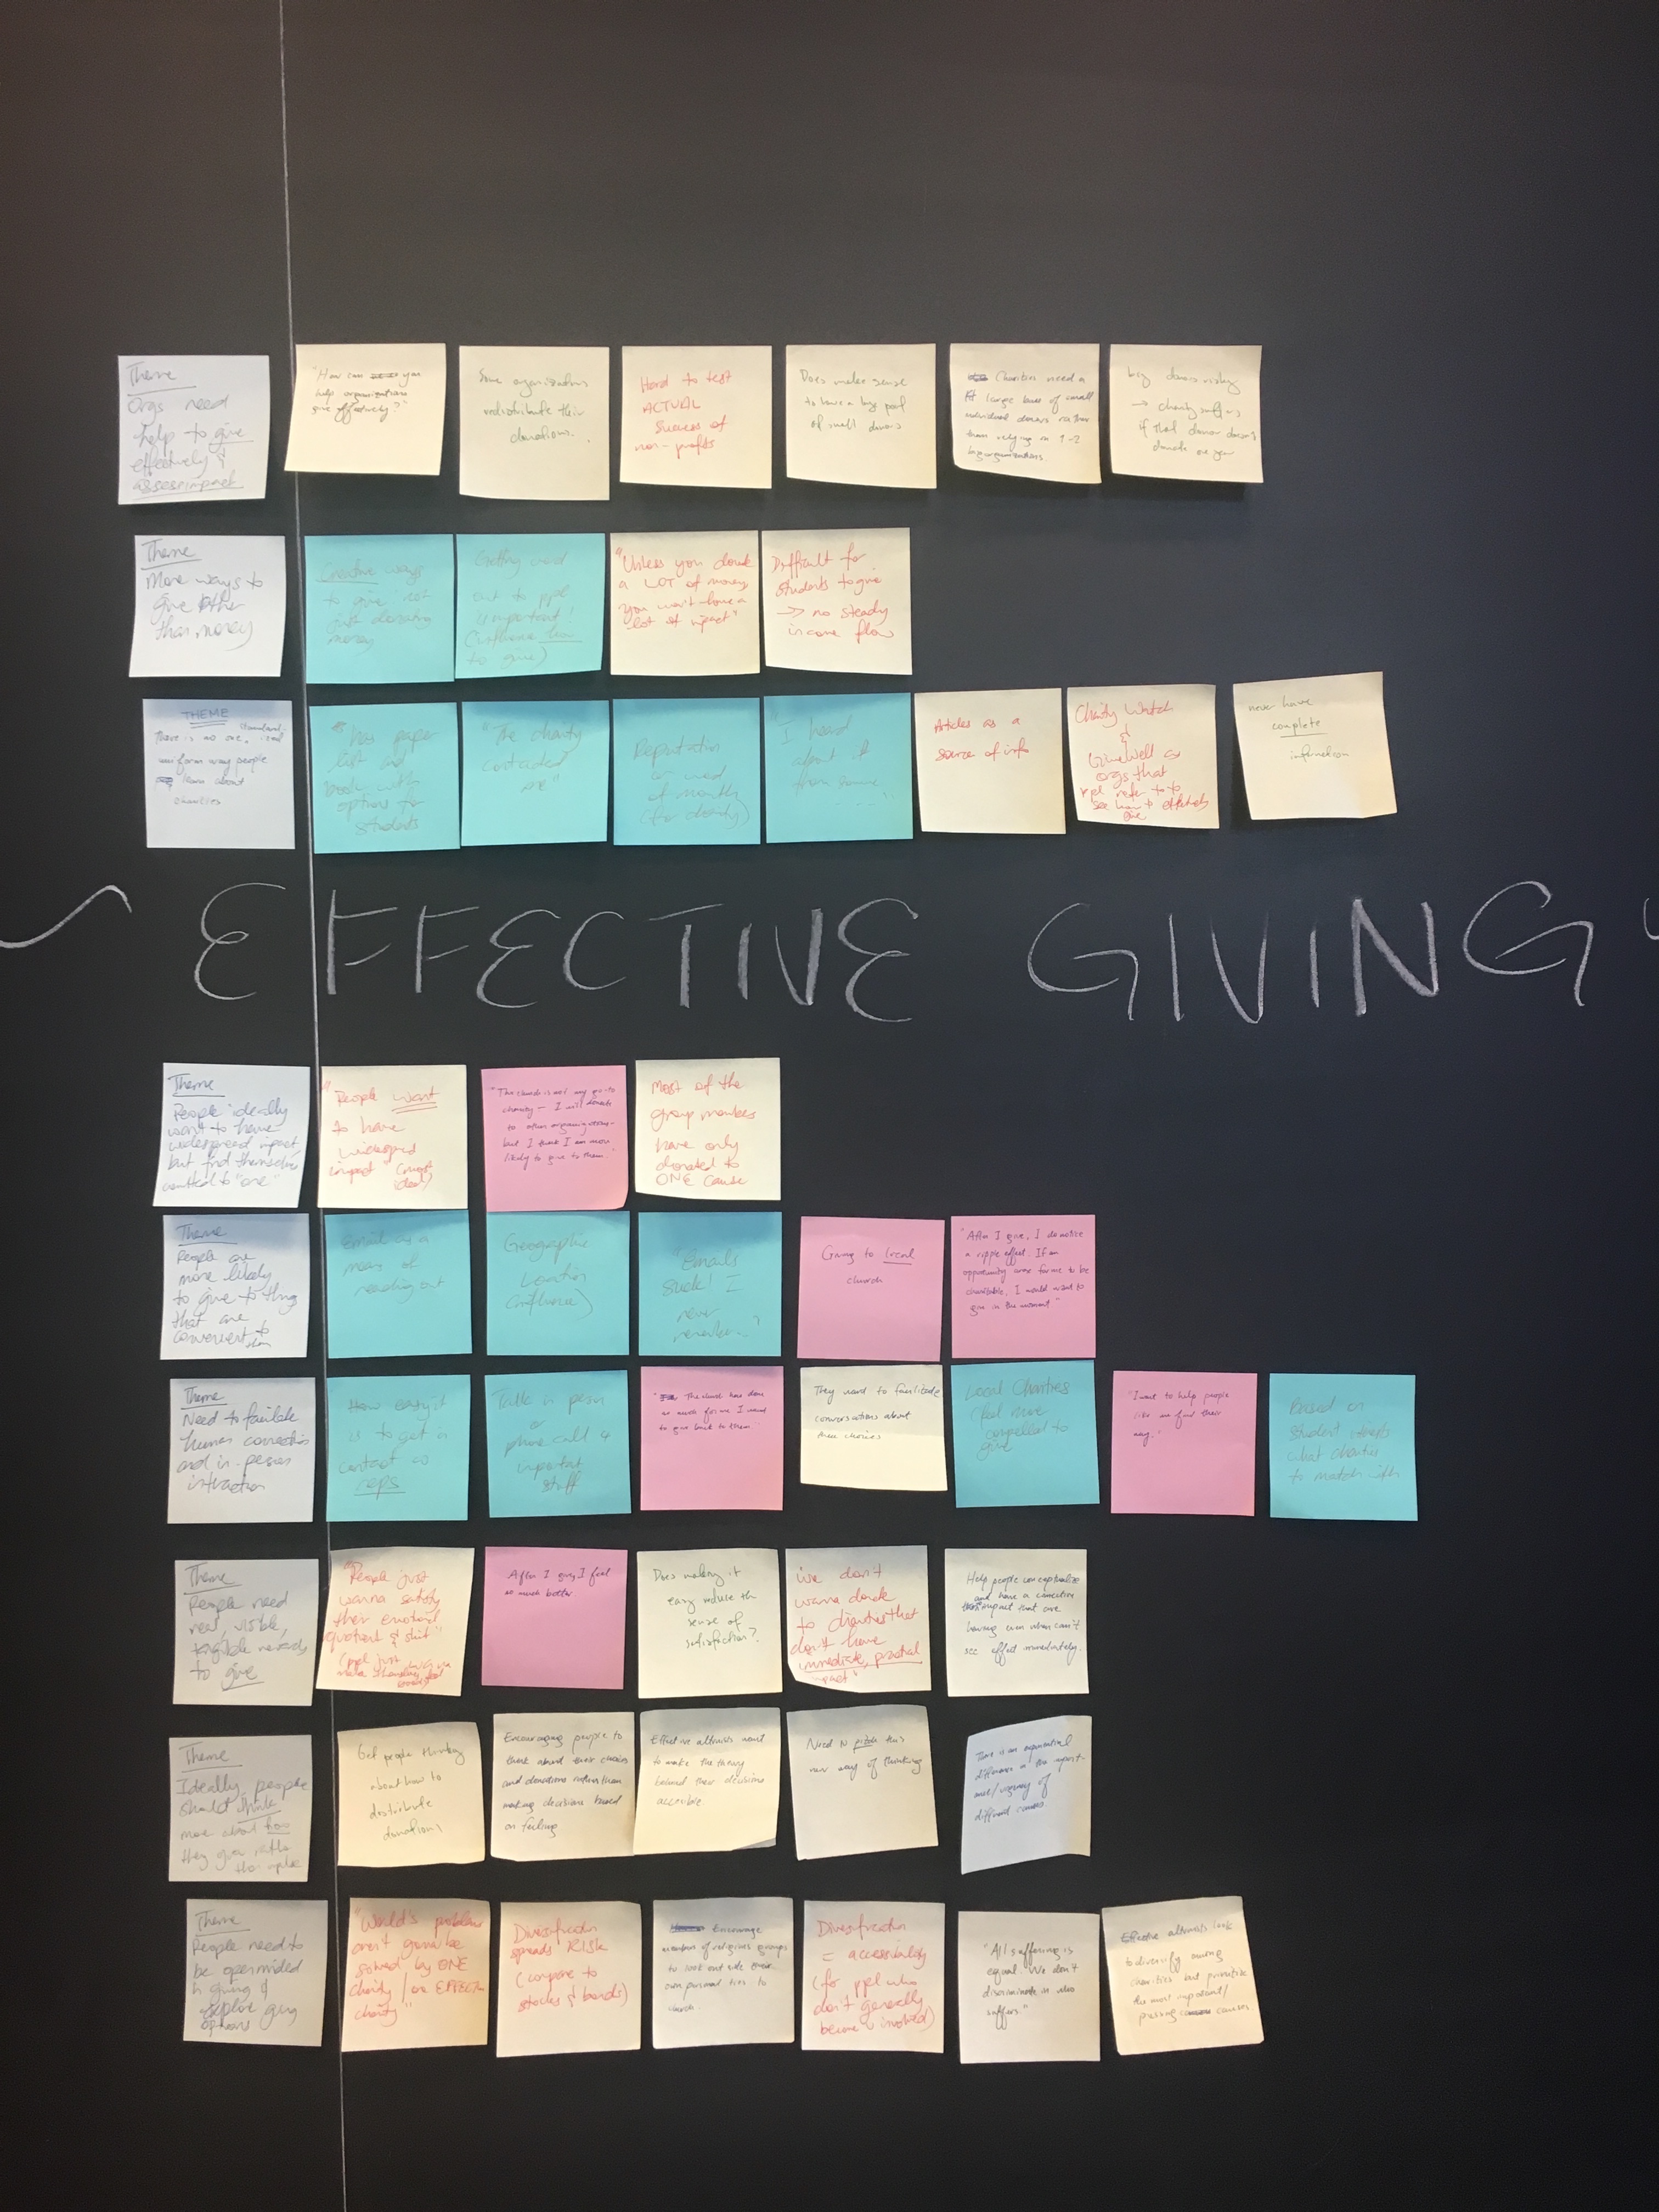 Theme
Orgs need
help to give
effectively &
assess impact
"How can you
help organizations
give effectively?"
Some organizations
redistribute their
donations.
Hard to test
ACTUAL
success of
non-profits
Does make sense
to have a big pool
of small donors
Charities need a
large base of small
individual donors rather
than relying on 1-2
big organizations
big donors risky
→ charity suffers
if that donor doesn't
donate one year
Theme
More ways to
give other
than money
Creative ways
to give not
just donating
money
Getting word
out to ppl
important!
(influence how
to give)
"Unless you donate
a LOT of money,
you won't have a
lot of impact"
Difficult for
students to give
→ no steady
income flow
THEME
There is no one,
uniform way people
learn about
charities
has paper
list and
book with
options for
students
"The charity
contacted
me"
Reputation
or word
of mouth
(for charity)
"I heard
about it
from
Articles as a
source of info
Charity Watch
&
GiveWell as
orgs that
ppl refer to to
see how to effectively
give
never have
complete
information
~ EFFECTIVE GIVING
Theme
People ideally
want to have
widespread impact,
but find themselves
to "one"
"People want
to have
widespread
impact"
ideal)
"The church is not my go-to
charity - I will donate
to other organizations -
but I think I am more
likely to give to them."
Most of the
group members
have only
donated to
ONE cause
Theme
People are
more likely
to give to things
that are
convenient to
them
Email as a
means of
reaching out
Geographic
Location
(influence)
"Emails
suck! I
never
Giving to local
church
"After I give, I do notice
a ripple effect. If an
opportunity arose for me to be
charitable, I would want to
give in the moment"
Theme
Need to facilitate
human connection
and in-person
interaction
How easy it
is to get in
contact w
reps
Talk in person
or
phone call 4
important
stuff
The church has done
so much for me I want
to give back to them"
They want to facilitate
conversations about
their choices
Local Charities
feel more
compelled to
give
"I want to help people
like me find their
way."
Based on
student interests
what charities
to match with
Theme
People need
real, visible,
tangible rewards
to give
"People just
wanna satisfy
their emotional
quotient & shit"
(ppl just
After I give, I feel
so much better
Does making it
easy reduce the
sense of
satisfaction?
we don't
wanna donate
to charities that
don't have
immediate, practical
impact"
Help people conceptualize
and have a
impact that are
having even when can't
see effect immediately.
Theme
Ideally people
should think
more about how
they give rather
than
Get people thinking
about how to
distribute
donations
Encouraging people to
think about their choices
and donations rather than
making decisions based
on feeling
Effective altruists want
to make the theory
behind their decisions
accessible
Need to pitch this
new way of thinking
There is an exponential
difference in the import-
ance/urgency of
different causes.
Theme
People need to
be openminded
in giving &
explore giving
options
"World's problems
aren't gonna be
solved by ONE
charity / one EFFECTIVE
charity"
Diversification
spreads RISK
(compare to
stocks & bonds)
Encourage
members of religious groups
to look outside their
own personal ties to
church.
Diversification
= accessibility
(for ppl who
don't generally
become involved)
"All suffering is
equal. We don't
discriminate in who
suffers."
Effective altruists look
to diversify among
charities but prioritize
the most important/
pressing causes